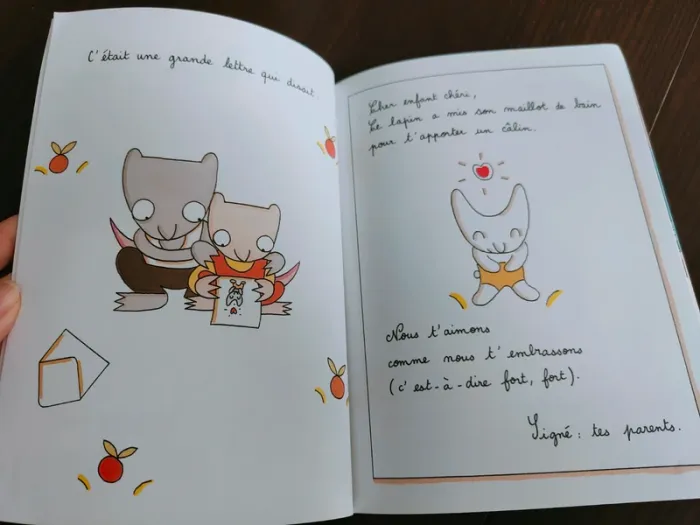 C'était une grande lettre qui disait :
Cher enfant chéri,
Le lapin a mis son maillot de bain
pour t'apporter un câlin.
Nous t'aimons
comme nous t'embrassons
(c'est-à-dire fort, fort).
Signé : tes parents.